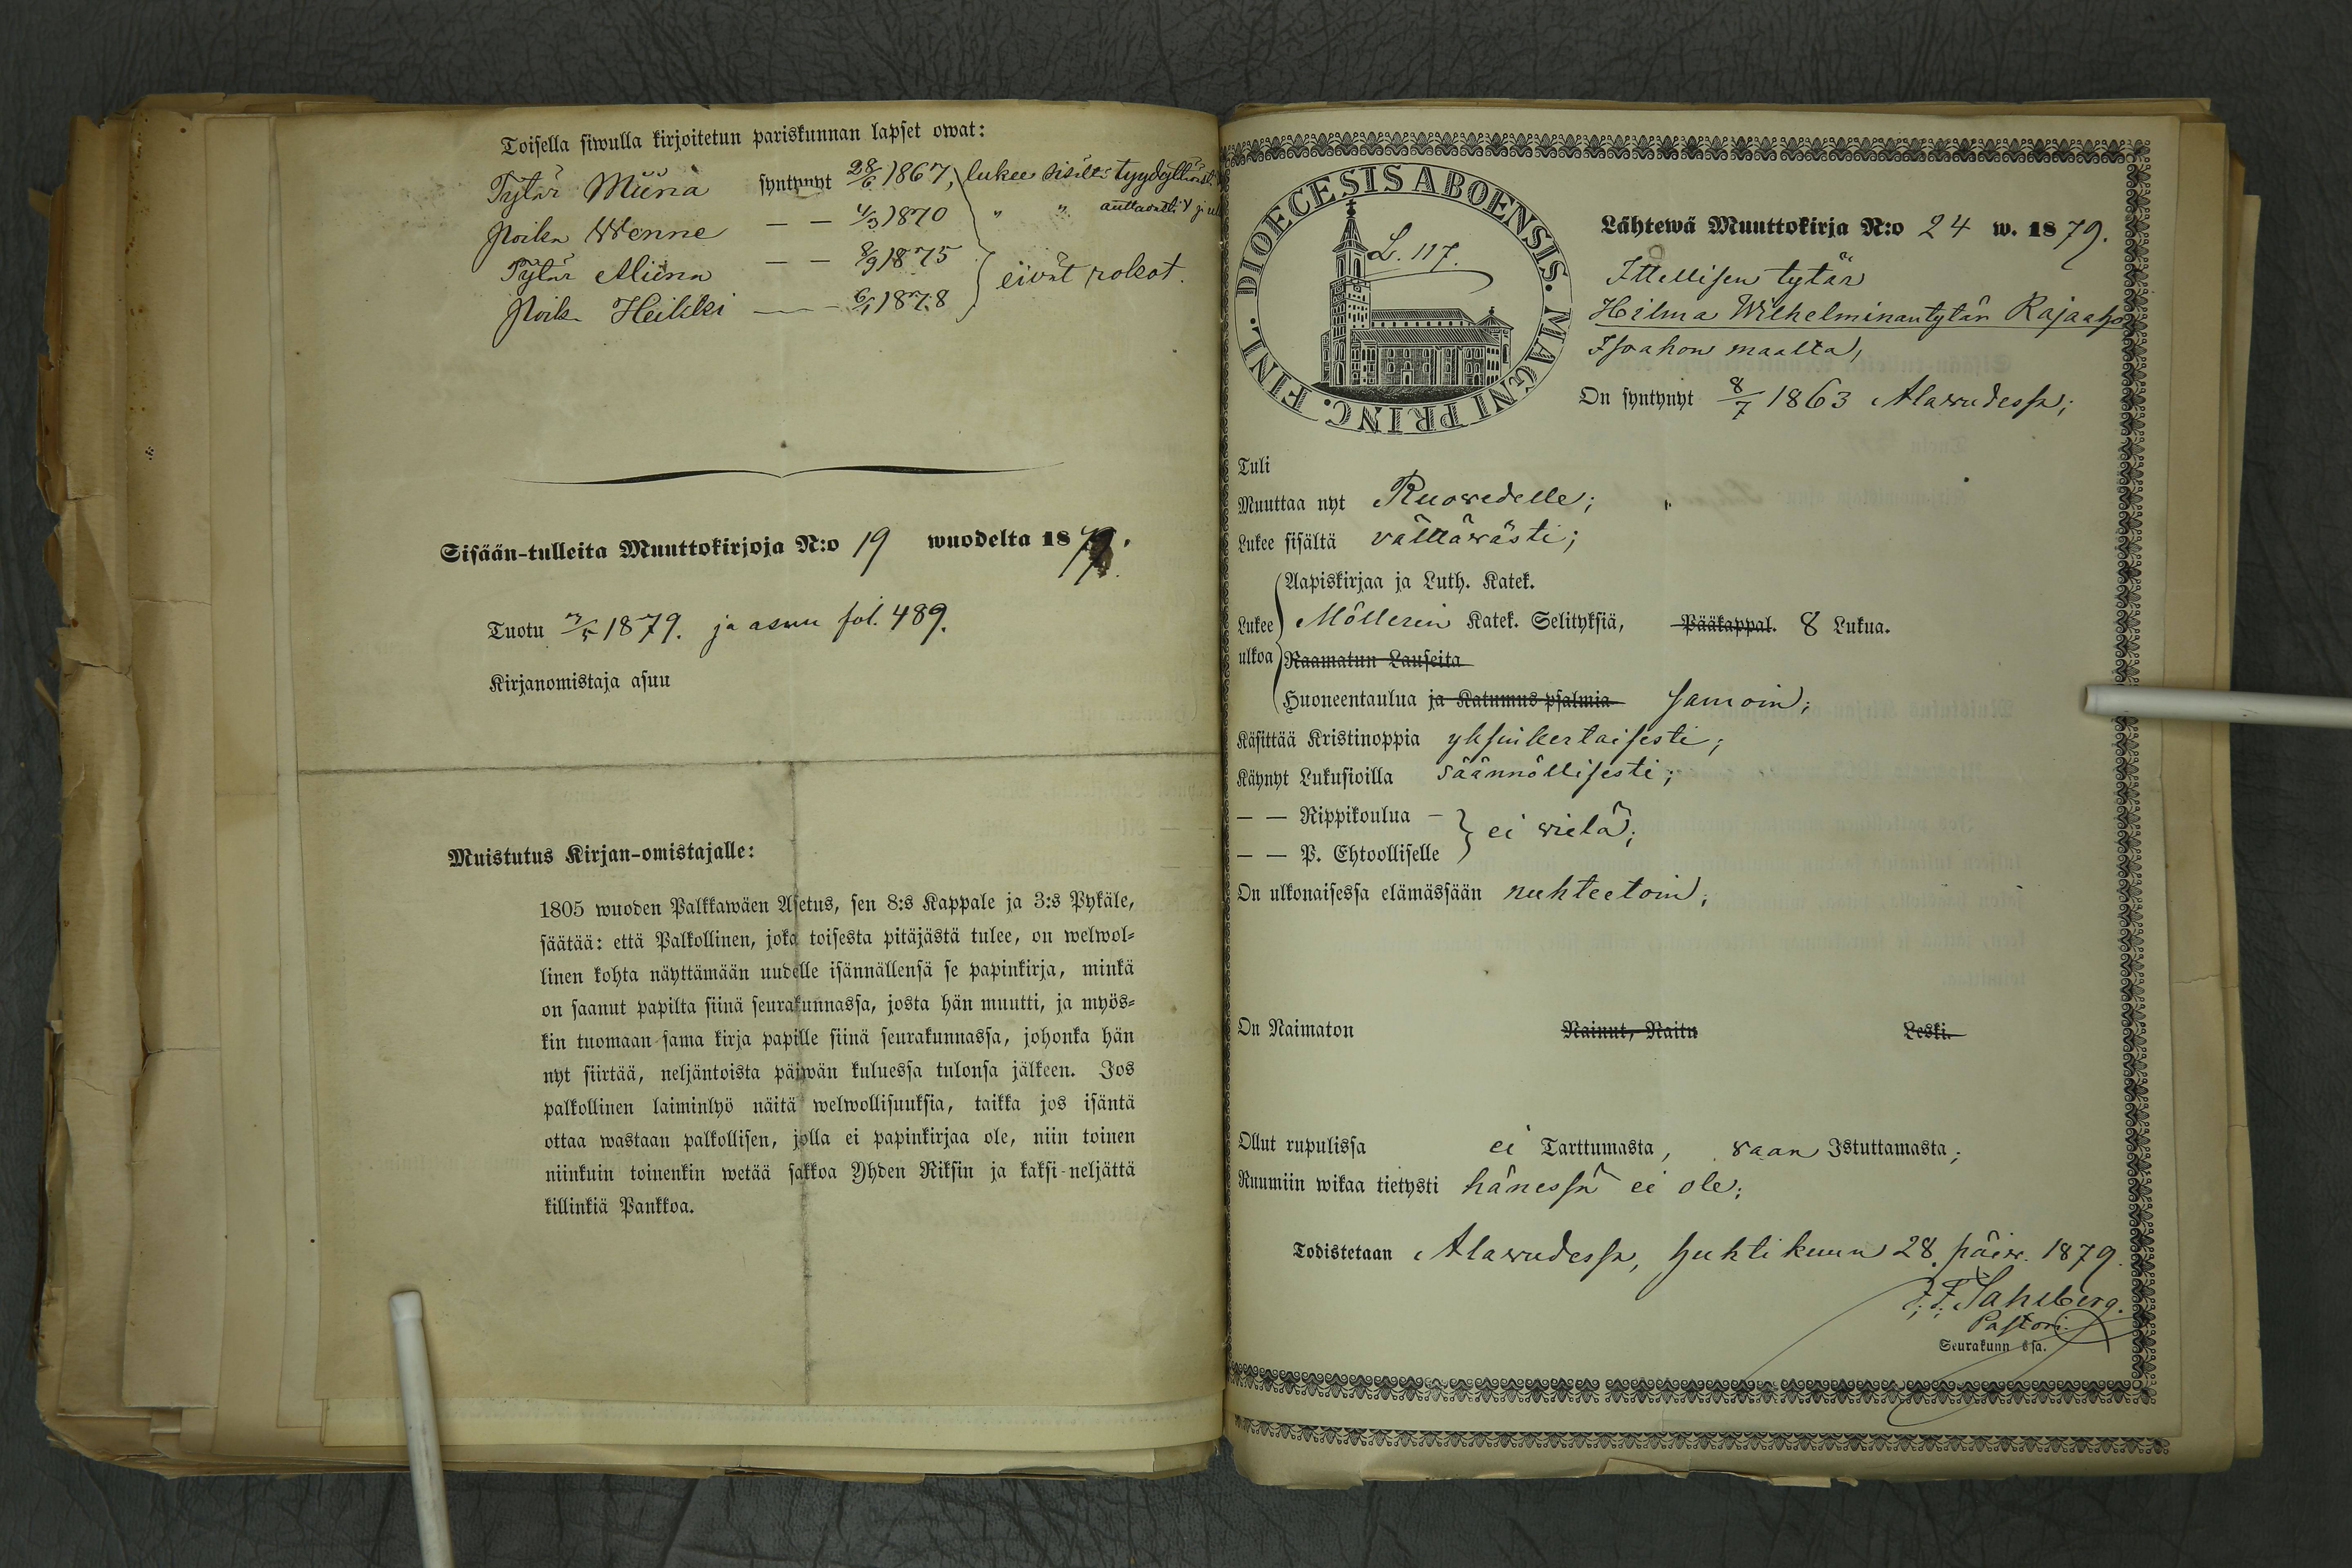 Toisella siwulla kirjoitetun pariskunnan lapset owat:
Tytär Miina syntynyt 28/6 1867, lukee sisältä
Poika Wenne — — 4/3 1870 " "
Tytär Miina — — 8/9 1875
Poika Heikki — — 6/1 1878 eivät rokot.
Sisään-tulleita Muuttokirjoja N:o 19 wuodelta 1879.
Tuotu 1879. ja asuu fol. 489.
Kirjanomistaja asuu
Muistutus Kirjan-omistajalle:
1805 wuoden Palkkawäen Asetus, sen 8:s Kappale ja 3:s Pykäle,
säätää: että Palkollinen, joka toisesta pitäjästä tulee, on welwol-
linen kohta näyttämään uudelle isännällensä se papinkirja, minkä
on saanut papilta siinä seurakunnassa, josta hän muutti, ja myös-
kin tuomaan sama kirja papille siinä seurakunnassa, johonka hän
nyt siirtää, neljäntoista päiwän kuluessa tulonsa jälkeen. Jos
palkollinen laiminlyö näitä welwollisuuksia, taikka jos isäntä
ottaa wastaan palkollisen, jolla ei papinkirjaa ole, niin toinen
niinkuin toinenkin wetää sakkoa Yhden Riksin ja kaksi-neljättä
killinkiä Pankkoa.
DIOECESIS ABOENSIS. MAGNI PRINC. FINL.
L. 117.
Lähtewä Muuttokirja N:o 24 w. 1879.
Ittellisen tytär
Hilma Wilhelminantytär Rajaaho
Isoahon maalta,
On syntynyt 8/7 1863 Alawudessa;
Tuli
Muuttaa nyt Ruowedelle;
Lukee sisältä välttäwästi;
Aapiskirjaa ja Luth. Katek.
Lukee Möllerin Katek. Selityksiä, Pääkappal. 8 Lukua.
ulkoa Raamatun Lauseita
Huoneentaulua ja Katumus psalmia samoin;
Käsittää Kristinoppia yksinkertaisesti;
Käynyt Lukusioilla säännöllisesti;
— — Rippikoulua —
ei wielä;
— — P. Ehtoolliselle
On ulkonaisessa elämässään nuhteetoin;
On Naimaton Nainut, Naitu Leski.
Ollut rupulissa ei Tarttumasta, vaan Istuttamasta;
Ruumiin wikaa tietysti hänessä ei ole;
Todistetaan Alawudessa, huhtikuun 28 päiw. 1879.
F. F. Sahlberg.
Pastori.
Seurakunn ssa.